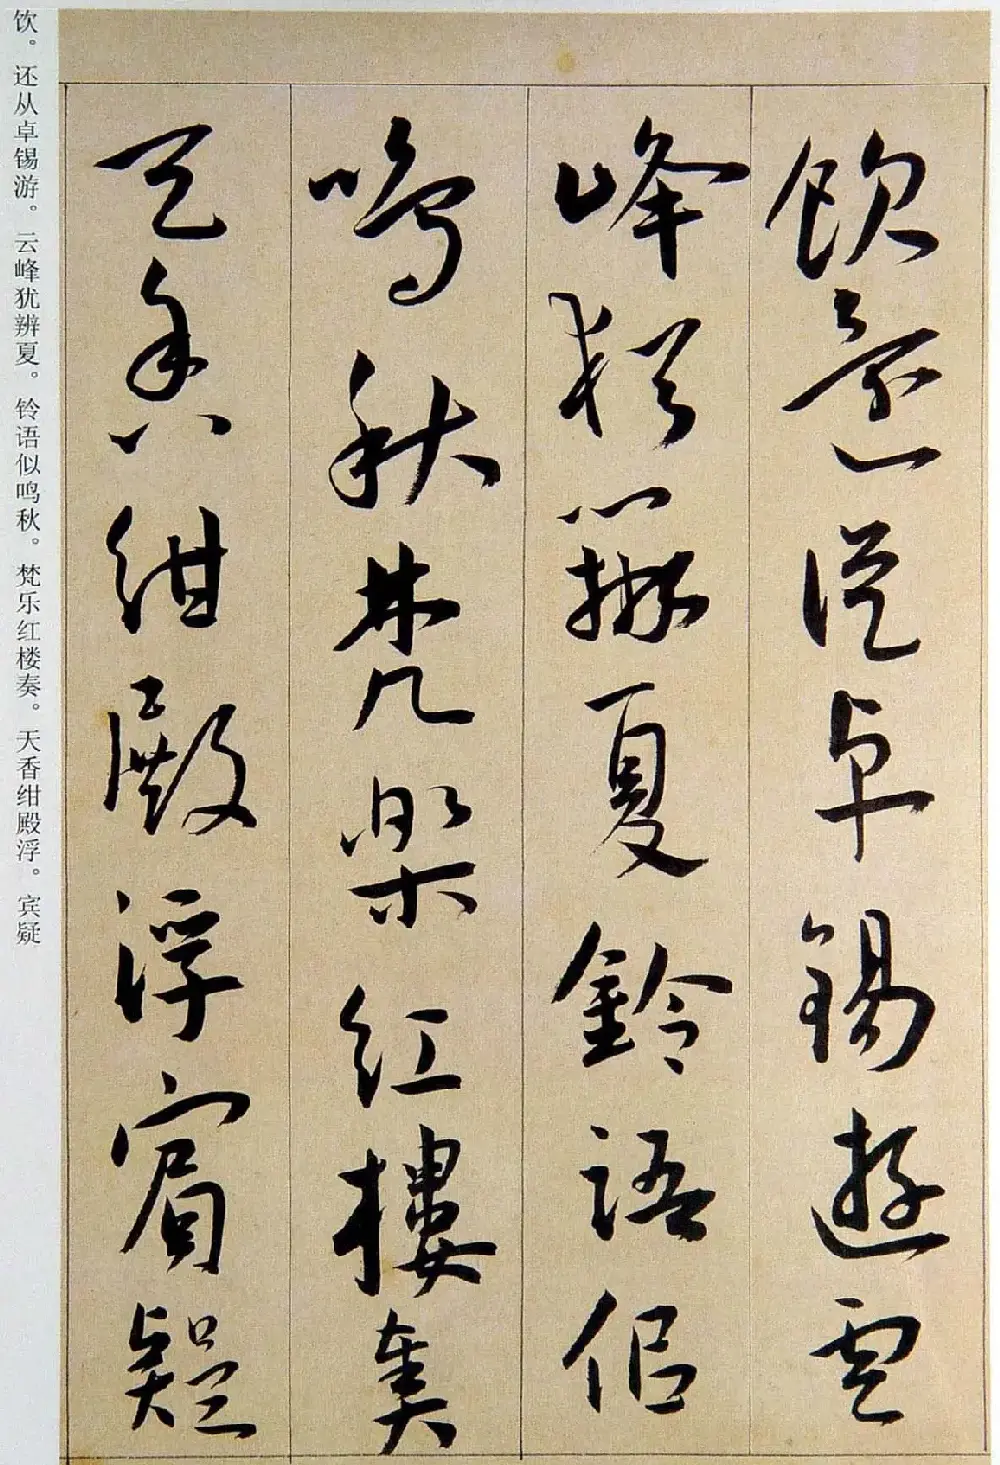 飲還從卓錫遊雲
峰猶辨夏鈴語侣
鳴秋梵樂紅樓奏
天香紺殿浮賓疑
饮。还从卓锡游。云峰犹辨夏。铃语似鸣秋。梵乐红楼奏。天香绀殿浮。宾疑